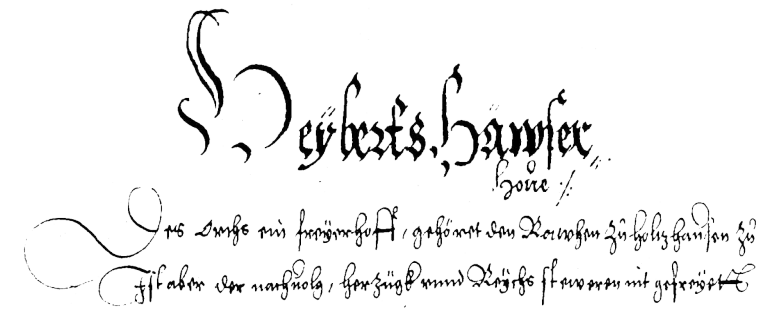 Heÿberts Häwser
Hoüe ./.
Des Orths ein freÿerhoff, gehöret den Rawhen Zů holtzhausen Zů
Ist aber der nachuolg, herZügk vnnd Reÿchs steweren nit gefreÿett